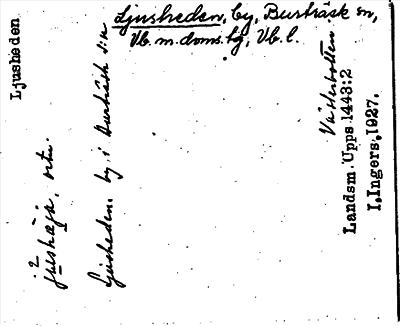 Ljusheden, by, Burträsk sn,
Vb. m. doms. hg, Vb. l.
Ljusheden
ortn.
Ljusheden. by i Burträsk s:n
Västerbotten
Landsm. Upps. 1443:2
I. Ingers, 1927.